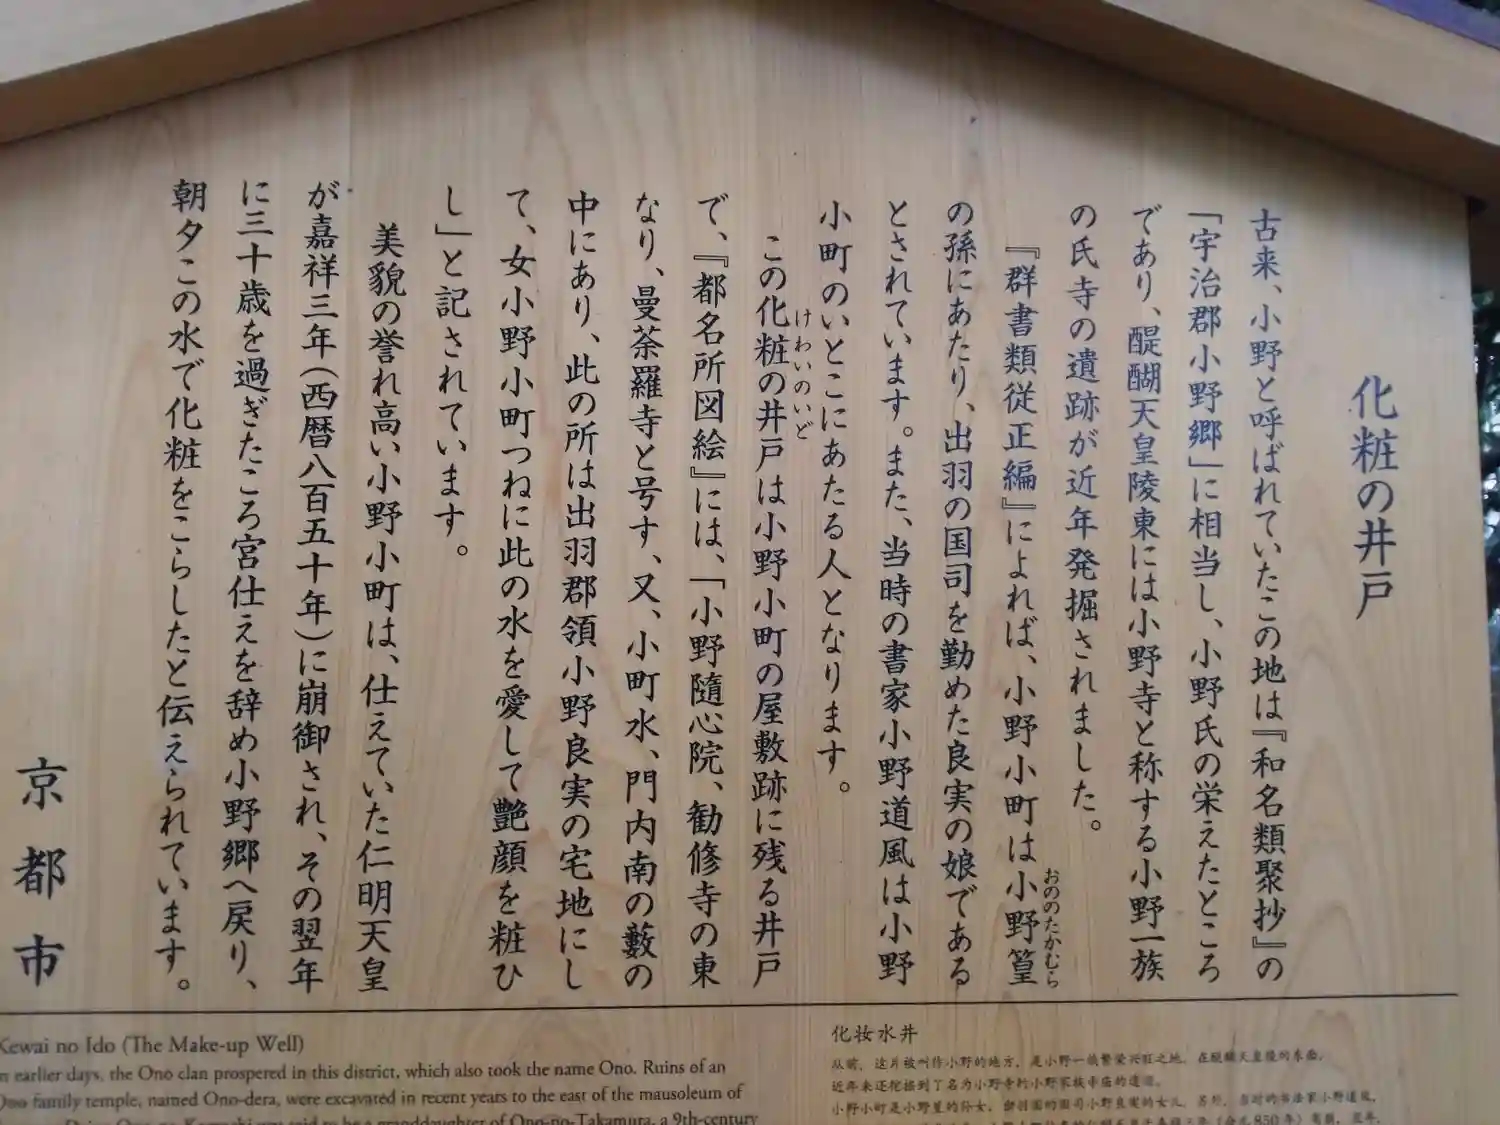 化粧の井戸
古来、小野と呼ばれていたこの地は『和名類聚抄』の
「宇治郡小野郷」に相当し、小野氏の栄えたところ
であり、醍醐天皇陵東には小野寺と称する小野一族
の氏寺の遺跡が近年発掘されました。
『群書類従正編』によれば、小野小町は小野篁
おののたかむら
の孫にあたり、出羽の国司を勤めた良実の娘である
とされています。また、当時の書家小野道風は小野
小町のいとこにあたる人となります。
この化粧の井戸は小野小町の屋敷跡に残る井戸
けわいのいど
で、『都名所図絵』には、「小野隨心院、勧修寺の東
なり、曼荼羅寺と号す、又、小町水、門内南の藪の
中にあり、此の所は出羽郡領小野良実の宅地にし
て、女小野小町つねに此の水を愛して艶顔を粧ひ
し」と記されています。
美貌の誉れ高い小野小町は、仕えていた仁明天皇
が嘉祥三年(西暦八百五十年)に崩御され、その翌年
に三十歳を過ぎたころ宮仕えを辞め小野郷へ戻り、
朝夕この水で化粧をこらしたと伝えられています。
京都市
Kewai no Ido (The Make-up Well)
earlier days, the Ono clan prospered in this district, which also took the name Ono. Ruins of an
Ono family temple, named Ono-dera, were excavated in recent years to the east of the mausoleum of
said to be a granddaughter of Ono-no-Takamura, a 9th-century
化妆水井
从前，这片被叫作小野的地方，是小野一族繁荣兴旺之地，在醍醐天皇陵的东面，
近年来还挖掘到了名为小野寺的小野家族寺庙的遗迹。
小野小町是小野篁的孙女，出羽国的国司小野良实的女儿。另外，当时的书法家小野道风，